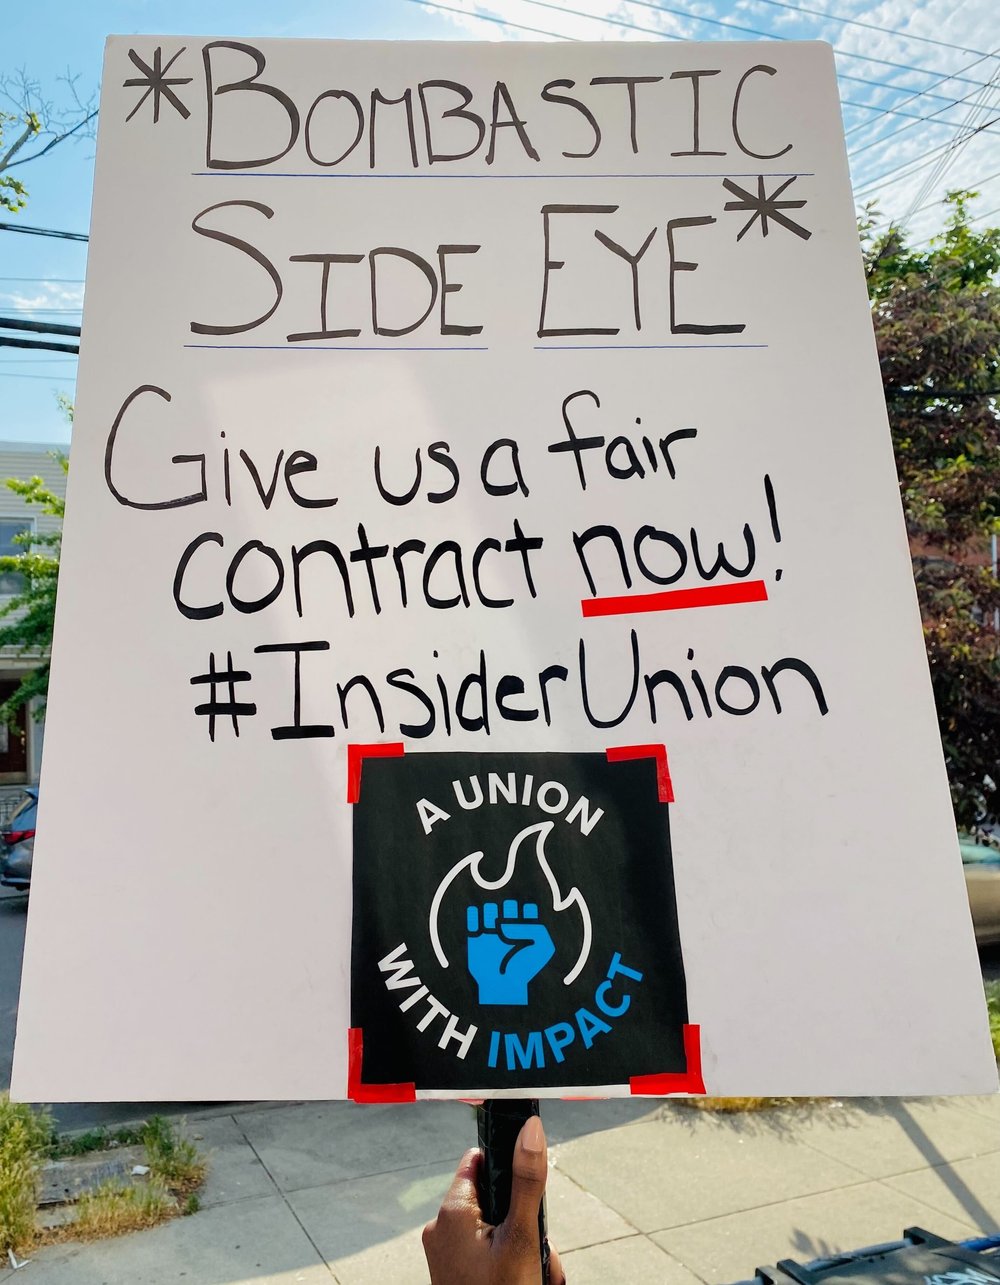 *BOMBASTIC
SIDE EYE*
Give us a fair
contract now!
#InsiderUnion
A UNION
WITH IMPACT